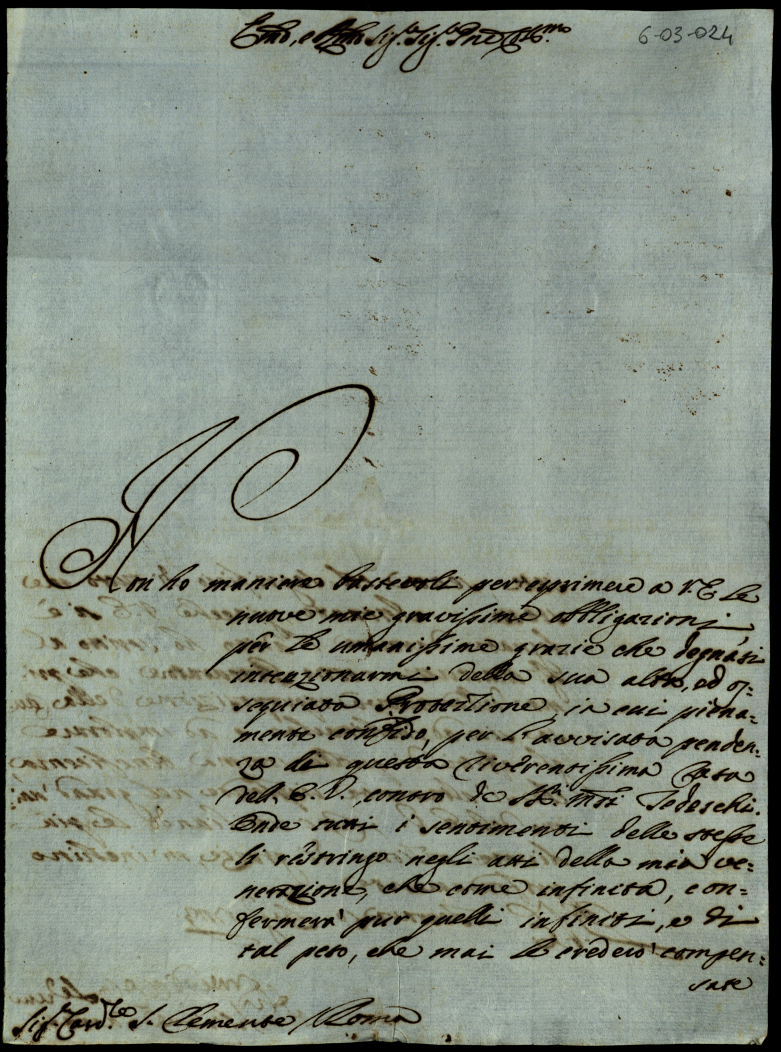 Emo, e Rmo Sig.r Sig.r Pne Colmo
6-03-024
Non ho maniere bastevoli per esprimere a V.E. le
nuove mie gravissime obbligazioni
per le umanissime grazie che degnasi
intenzionarmi della sua alta, ed os-
sequiata Protettione, in cui piena-
mente confido, per l'avvisata penden-
za di questa riverentissima Casa
dell. E. V. contro de Tedeschi.
Onde tutti i sentimenti delle stesse
li ristringo negli atti della mia ve-
nerazione, che come infinita, con-
fermerà pur quelli infiniti, e di
tal peso, che mai le crederò compen-
sate
Sig.r Card.le S. Clemente Roma